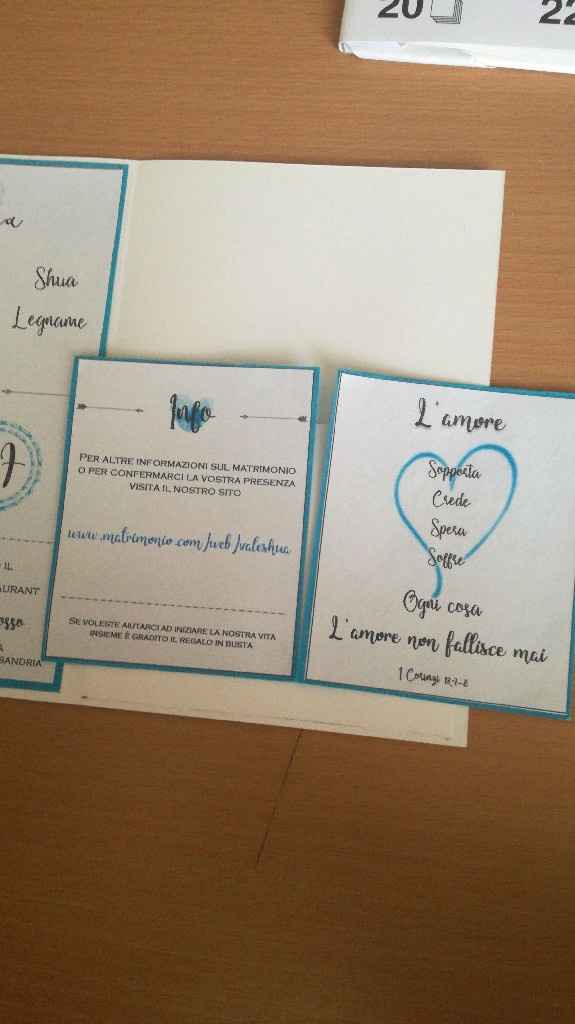 20
22
Shua
Legname
IL
Info
PER ALTRE INFORMAZIONI SUL MATRIMONIO
O PER CONFERMARCI LA VOSTRA PRESENZA
VISITA IL NOSTRO SITO
www.matrimonio.com/web/valeshua
SE VOLESTE AIUTARCI AD INIZIARE LA NOSTRA VITA
INSIEME È GRADITO IL REGALO IN BUSTA
L'amore
Sopporta
Crede
Spera
Soffre
Ogni cosa
L'amore non fallisce mai
1 Corinzi 13:7-8